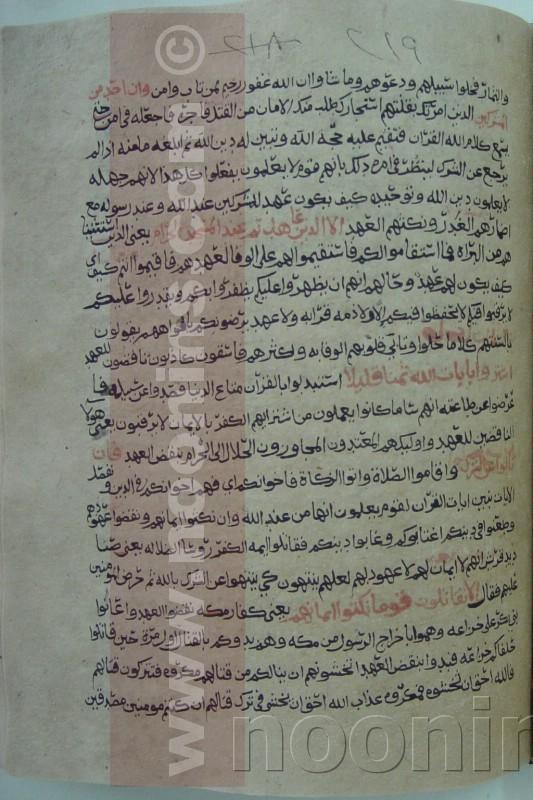 ٢١٨ ٢١٩
والثمار فخلوا سبيلهم ودعوهم وما شاوا ان الله غفور رحيم بمن تاب وامن وان احد من
المشركين الذين امرتك بقتلهم استجارك طلب منك الامان من القتل فاجره فاجعله في امن حتى
يسمع كلام الله القران فتقيم عليه حجة الله وتبين له دين الله ثم ابلغه مامنه اذا لم
يرجع عن الشرك لينظر في امره ذلك بانهم قوم لا يعلمون يفعلوا كل هذا لانهم جهلة
لا يعلمون دين الله وتوحيده كيف يكون عهد للمشركين عند الله وعند رسوله مع
اضمارهم الغدر ونكثهم العهد الا الذين عاهدتم عند المسجد الحرام يعني الذين استثنا
هم من البراة فما استقاموا لكم فاستقيموا لهم على الوفا للعهد هم فاقيموا انتم كيف اي
كيف يكون لهم عهد وحالهم انهم ان يظهروا عليكم يظفروا بكم ويقدروا عليكم
لا يرقبوا فيكم لا يحفظوا فيكم الا ولا ذمة قرابة ولا عهد يرضونكم بافواههم يقولون
بالسنتهم كلاما حلوا وتابى قلوبهم الوفا به واكثرهم فاسقون كاذبون ناقضون للعهد
اشتروا بايات الله ثمنا قليلا استبدلوا بالقران متاع الدنيا فصدوا عن سبيله فا
عرضوا عن طاعته انهم ساء ما كانوا يعملون من اشترائهم الكفر بالايمان لا يرقبون يعني هولا
الناقضين للعهد واوليك هم المعتدون المجاوزون الحلال الى الحرام بنقض العهد فان
تابوا عن الشرك واقاموا الصلاة واتوا الزكاة فاخوانكم اي فهم اخوانكم في الدين ونفصل
الايات نبين ايات القران لقوم يعلمون انها من عند الله وان نكثوا ايمانهم ونقضوا عهودهم
وطعنوا في دينكم اغتابوكم وعابوا دينكم فقاتلوا ايمة الكفر روسا الضلالة يعني صنا
ديد قريش انهم لا ايمان لهم لا عهود لهم لعلهم ينتهون كي ينتهوا عن الشرك بالله ثم حرض المومنين
عليهم فقال الا تقاتلون قوما نكثوا ايمانهم يعني كفار مكة نقضوا العهد واعانوا
بني بكر على خزاعة وهموا باخراج الرسول من مكة وهم بدوكم بالقتال اول مرة حين قاتلوا
حلفاكم خزاعة فبدوا بنقض العهد اتخشونهم ان ينالكم من قتالهم مكروه فتتركون قتالهم
فالله احق ان تخشوه فمكروه عذاب الله احق ان يخشى في ترك قتالهم ان كنتم مومنين مصدقين
www.noonins.com ©
noonin